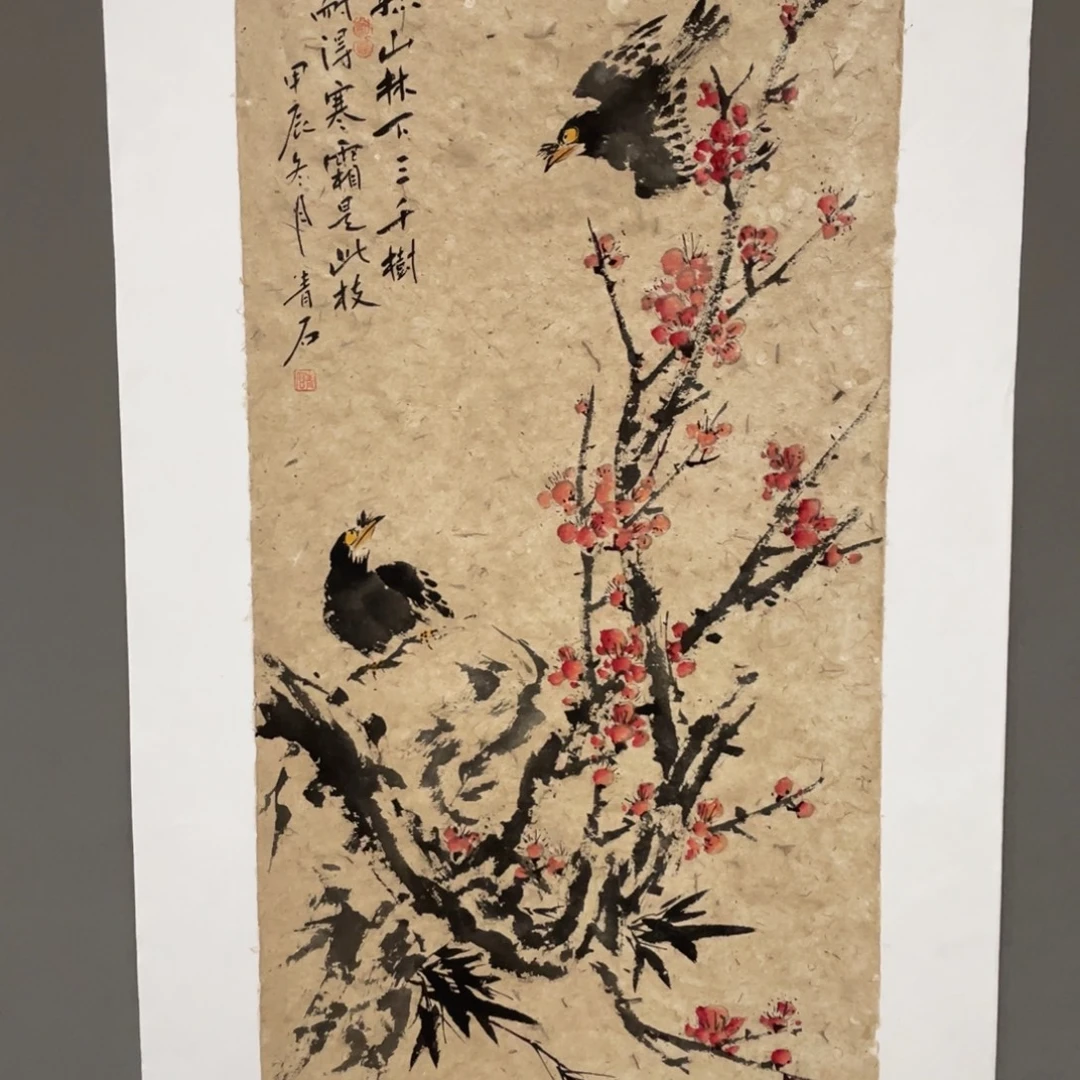 山林下三千樹
耐得寒霜是此枝
甲辰冬月青石